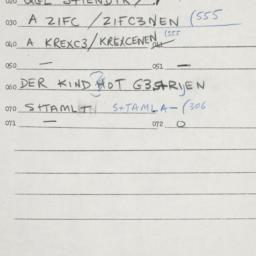 030 A ZIFC / ZIFC3NEN (555
040 A KREXC3/KREXCENEN (555
050 — 051 —
060 DER KIND HOT G3SRIJEN
070 S+TAMLT S+TAMLA- (306
071 — 072 O